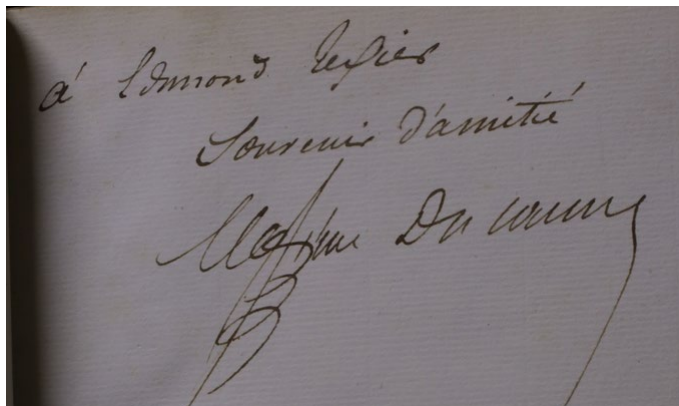 à Edmond Texier
Souvenir d'amitié
Maxime Du camp